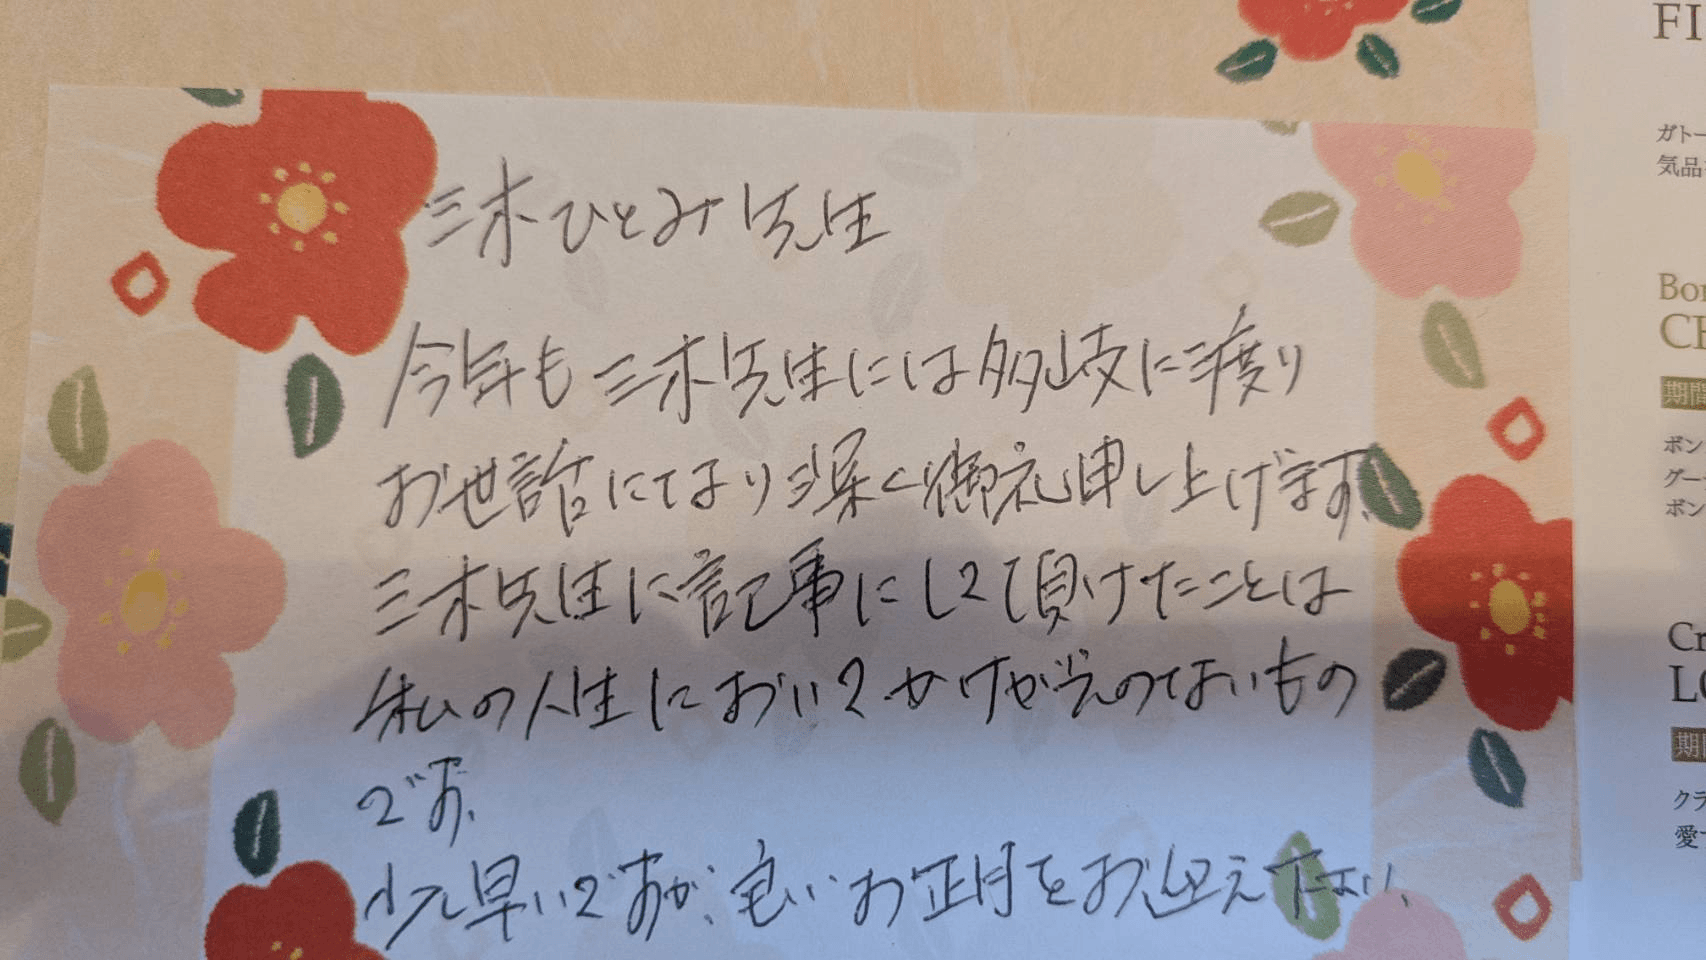 三木ひとみ先生
今年も三木先生には多岐に渡り
お世話になり深く御礼申し上げます。
三木先生に記事にして頂けたことは
私の人生においてかけがえのないもの
です。
少し早いですが、良いお正月をお迎え下さい。
FI
ガトー
気品
Bon
CE
期間
ボン
グー
ボン
Cr
LO
期間
クラ
愛